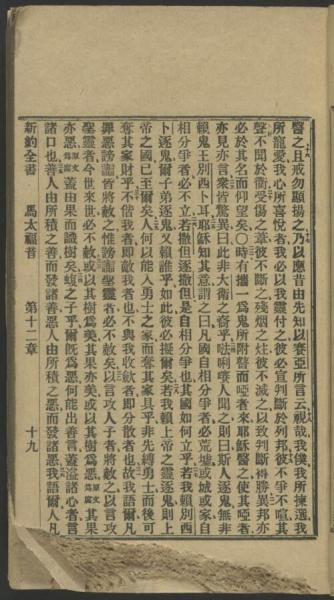 醫之且戒勿顯揚之乃以應昔由先知以賽亞所言云視哉我僕我所揀選我
所寵愛我心所喜悅者我必以我靈付之彼必宣判斷於列邦彼不爭不喧其
聲不聞於衢受傷之葦彼不斷之殘烟之炷彼不滅之以致判斷得勝異邦亦
必於其名而仰望矣〇時有攜一爲鬼所附瞽而啞者來耶穌醫之使其啞者
亦見亦言衆皆驚異曰此非大衛之裔乎𠵽唎㘔人聞之則曰斯人逐鬼無非
賴鬼王別西卜耳耶穌知其意謂之曰凡國自相分爭者必荒墟或城或家自
相分爭者必不立若撒但逐撒但是自相分爭也其國如何立乎若我賴別西
卜逐鬼爾子弟逐鬼又賴誰乎如此彼必擬爾矣若我賴上帝之靈逐鬼則上
帝之國已至爾矣人何以能入勇士之家而奪其家具乎非先縛勇士而後可
奪其家財乎不偕我者卽敵我者也不與我收歛者卽分散者也故我語爾凡
罪惡謗讟皆將赦之惟謗讟聖靈者必不赦矣以言攻人子者將赦之以言攻
聖靈者今世來世必不赦或以其樹爲美其果亦美或以其樹爲惡原文爲腐其果
亦惡原文爲腐蓋由果而識樹矣蝮之子乎爾旣爲惡何能出善言蓋溢諸心者言
諸口也善人由所積之善而發諸善惡人由所積之惡而發諸惡我語爾人凡
新約全書 馬太福音 第十二章 十九